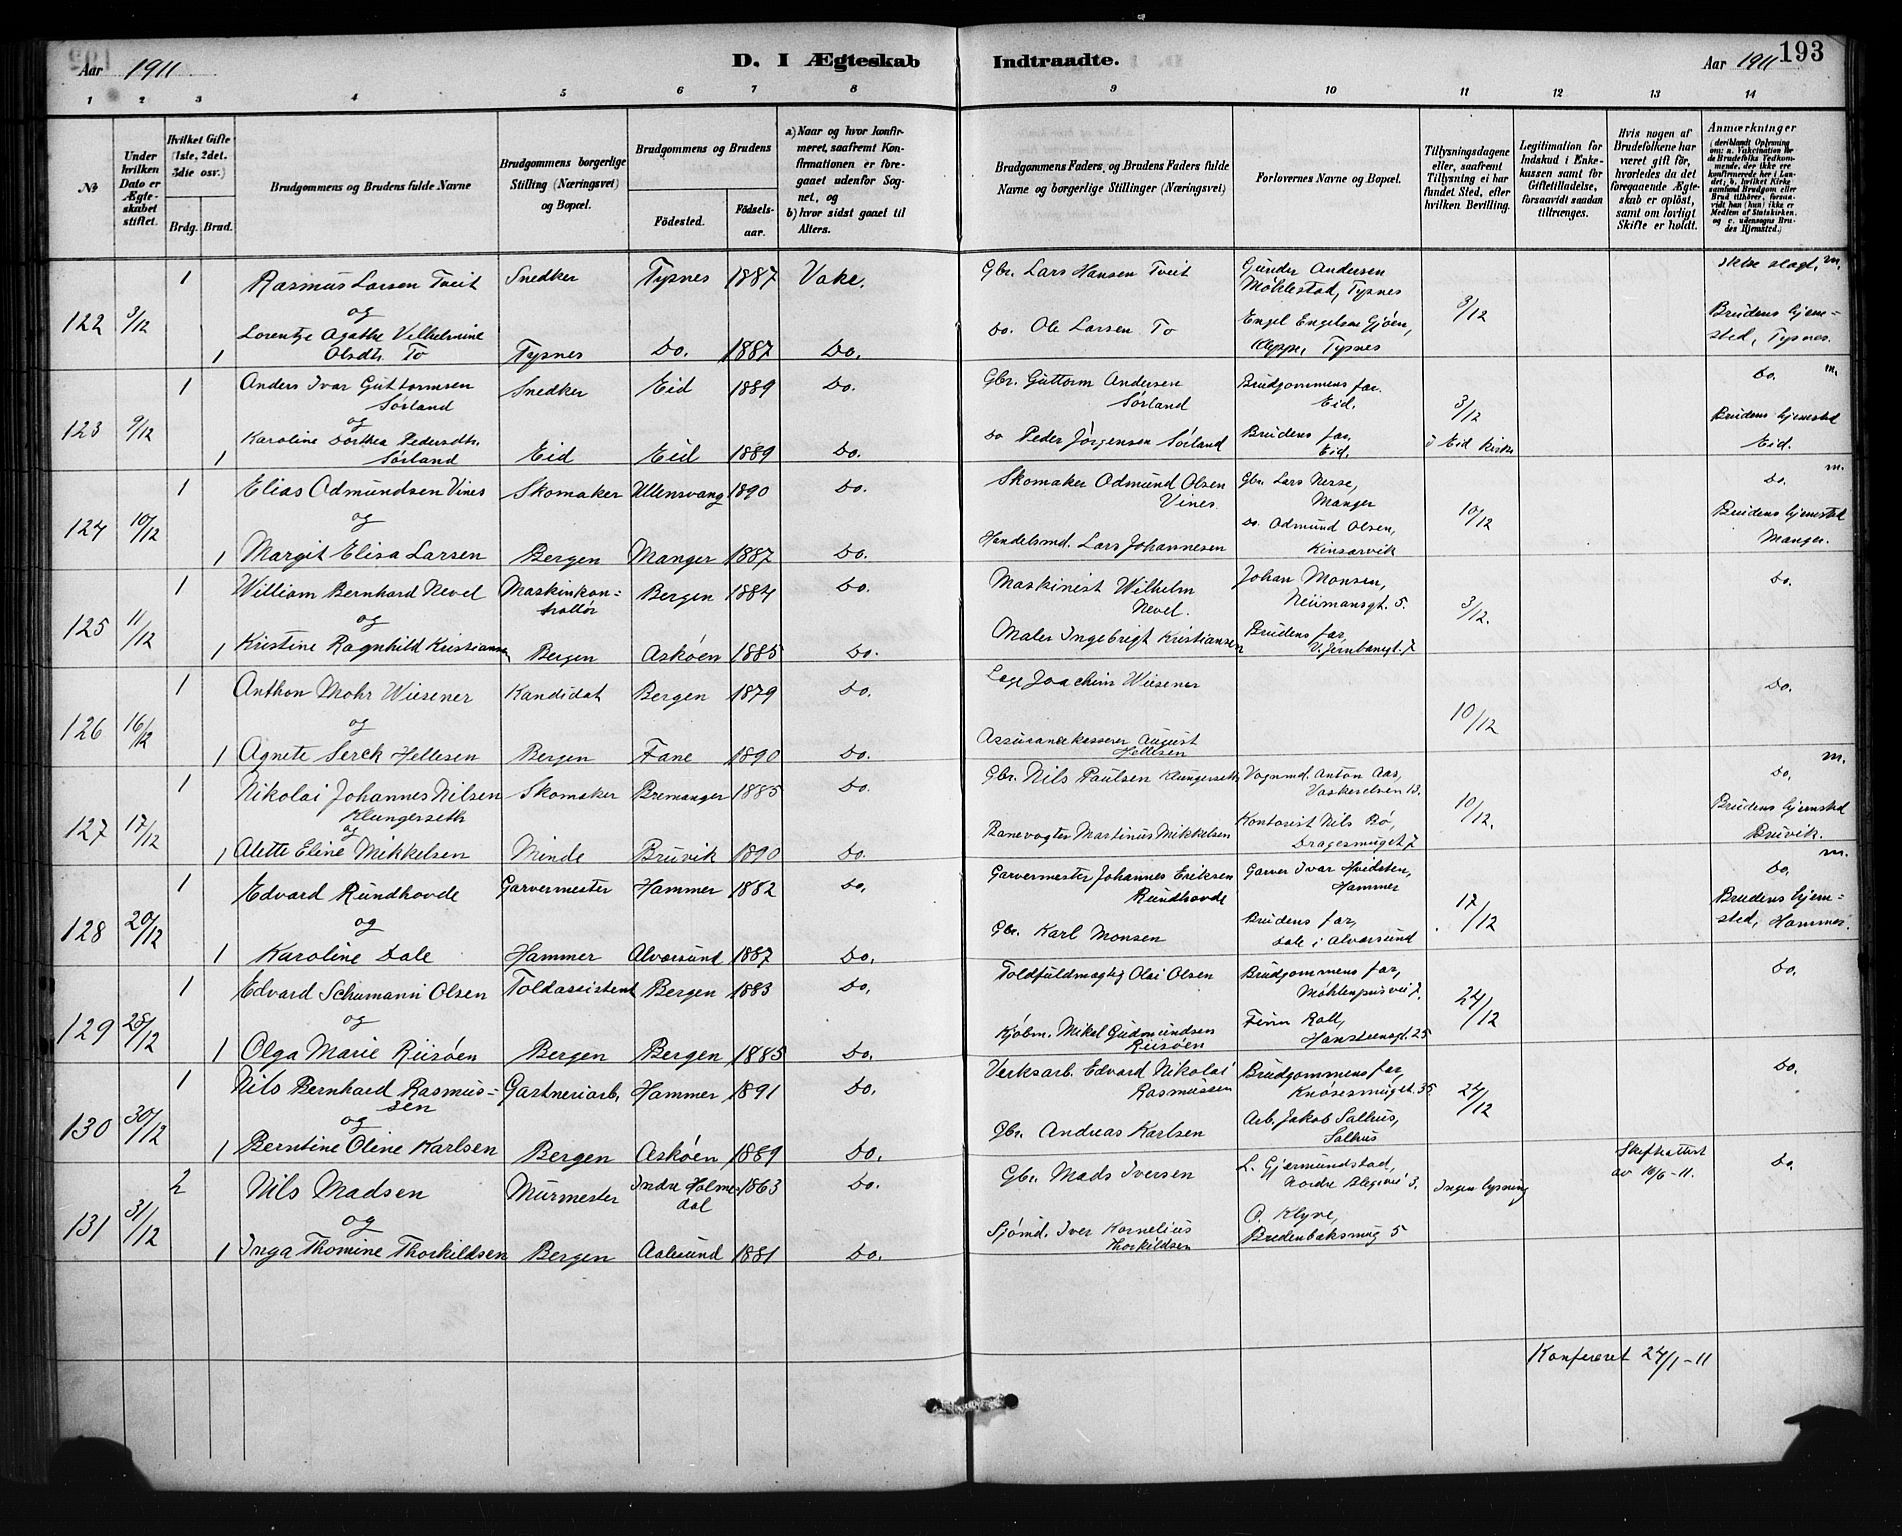 Aar 1911 D. I Ægteskab Indtraadte. Aar 1911 193
1 2 3 4 5 6 7 8 9 10 11 12 13 14
№
Under hvilken Dato er Ægteskabet stiftet.
Hvilket Gifte (1ste, 2det, 3die osv.)
Brdg. Brud.
Brudgommens og Brudens fulde Navne
Brudgommens borgerlige Stilling (Næringsvei) og Bopæl.
Brudgommens og Brudens
Fødested. Fødselsaar.
a) Naar og hvor konfirmeret, saafremt Konfirmationen er foregaaet udenfor Sognet, og
b) hvor sidst gaaet til Alters.
Brudgommens Faders, og Brudens Faders fulde Navne og borgerlige Stillinger (Næringsvei)
Forlovernes Navne og Bopæl.
Tillysningsdagene eller, saafremt Tillysning ei har fundet Sted, efter hvilken Bevilling.
Legitimation for Indskud i Enkekassen samt for Giftetilladelse, forsaavidt saadan tiltrænges.
Hvis nogen af Brudefolkene har været gift før, hvorledes da det foregaaende Ægteskab er opløst, samt om lovligt Skifte er holdt.
Anmærkninger
(deriblandt Oplysning om: a. Vaccination for de Brudefolks Vedkommende, der ikke ere konfirmerede her i Landet; b. hvilket Kirkesamfund Brudgom eller Brud tilhører, forsaavidt han (hun) ikke er Medlem af Statskirken. og c. udensogns Brudes Hjemsted.)
122 3/12
1 Rasmus Larsen Tveit Snedker Tysnes 1887 Vake. Gbr. Lars Hansen Tveit Gunder Andersen Møhlestad, Tysnes 3/12 ikke slægt. m.
og
1 Lorentze Agathe Vilhelmine Olsdtr. To Tysnes Do. 1887 Do. Do. Ole Larsen To Engel Engelsen Gjøen, Kleppe, Tysnes Brudens hjemsted, Tysnes.
123 9/12
1 Anders Ivar Guttormsen Sørland Snedker Eid 1889 Do. Gbr. Guttorm Andersen Sørland Brudgommens far. Eid. 3/12 i Eid kirke Do. m.
og
1 Karoline Dorthea Pedersdtr. Sørland Eid Eid 1889 Do. Do Peder Jørgensen Sørland Brudens far, Eid. Brudens hjemsted Eid.
124 10/12
1 Elias Odmundsen Vines Skomaker Ullensvang 1890 Do. Skomaker Odmund Olsen Vines. Gbr. Lars Nesse, Manger 10/12 Do. m.
og
1 Margit Elisa Larsen Bergen Manger 1887 Do. Handelsmd. Lars Johannesen Do. Odmund Olsen, Kinsarvik Brudens hjemsted Manger.
125 11/12
1 William Bernhard Nevel Maskinkontrollør Bergen 1884 Do. Maskinist Wilhelm Nevel. Johan Monsen, Neumansgt. 5. 3/12. Do.
og
1 Kristine Ragnhild Kristiansen Bergen Askøen 1885 Do. Maler Ingebrigt Kristiansen Brudens far, V. Jernbanegt. 7
126 16/12
1 Anthon Mohr Wiesener Kandidat Bergen 1879 Do. Læge Joachim Wiesener 10/12 Do.
og
1 Agnete Serck Hellesen Bergen Fane 1890 Do. Assurancekasserer August Hellesen
127 17/12
1 Nikolai Johannes Nilsen Klungerseth Skomaker Bremanger 1885 Do. Gbr. Nils Paulsen Klungerseth Vognmd. Anton Aas, Vaskerelven 13. 10/12. Do. m.
og
1 Alette Eline Mikkelsen Minde Bruvik 1890 Do. Banevogter Martinus Mikkelsen Kontorist Nils Bø, Dragesmuget 7 Brudens hjemsted Bruvik.
128 20/12
1 Edvard Rundhovde Garvermester Hammer 1882 Do. Garvermester Johannes Eriksen Rundhovde Garver Ivar Hvidsten, Hammer 17/12 Do. m.
og
1 Karoline Dale Hammer Alversund 1887 Do. Gbr. Karl Monsen Brudens far, Dale i Alversund Brudens hjemsted, Hammer.
129 28/12
1 Edvard Schumann Olsen Toldassistent Bergen 1883 Do. Toldfuldmægtig Olai Olsen Brudgommens far, Møhlenprisvei 7. 24/12 Do.
og
1 Olga Marie Riisøen Bergen Bergen 1885 Do. Kjøbm. Mikal Gudmundsen Riisøen Finn Roll, Hansteensgt. 25
130 30/12
1 Nils Bernhard Rasmussen Gartneriarb. Hammer 1891 Do. Verksarb. Edvard Nikolai Rasmussen Brudgommens far, Knøsesmuget 35 24/12 Do.
og
1 Berntine Oline Karlsen Bergen Askøen 1889 Do. Gbr. Andreas Karlsen Arb. Jakob Salhus, Salhus
131 31/12
2 Nils Madsen Murmester Indre Holmedal 1863 Do. Gbr. Mads Iversen L. Gjermundstad, Nordre Blegevei 3. Ingen lysning Skifteattest av 10/6-11. Do.
og
1 Inga Thomine Thorkildsen Bergen Aalesund 1881 Do. Sjømd. Iver Kornelius Thorkildsen O. Klyve, Bredenbaksmug 5
Konfereret 24/1-11